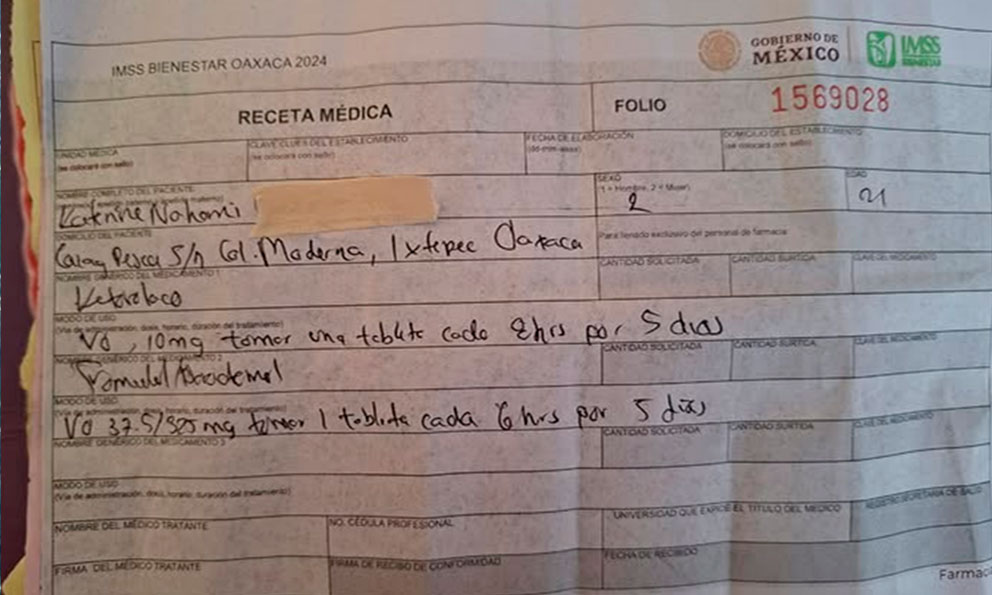 IMSS BIENESTAR OAXACA 2024
GOBIERNO DE
MÉXICO
IMSS
BIENESTAR
RECETA MÉDICA
FOLIO
1569028
UNIDAD MÉDICA
(se colocará con sello)
CLAVE CLUES DEL ESTABLECIMIENTO
(se colocará con sello)
FECHA DE ELABORACIÓN
(dd-mm-aaaa)
DOMICILIO DEL ESTABLECIMIENTO
(se colocará con sello)
NOMBRE COMPLETO DEL PACIENTE
Nahomi
SEXO
1 = Hombre, 2 = Mujer
2
EDAD
21
DOMICILIO DEL PACIENTE
S/n Col. Moderna, Ixtepec Oaxaca
Para llenado exclusivo del personal de farmacia
NOMBRE GENÉRICO DEL MEDICAMENTO 1
CANTIDAD SOLICITADA
CANTIDAD SURTIDA
CLAVE DEL MEDICAMENTO
Ketorolaco
MODO DE USO
(Vía de administración, dosis, horario, duración del tratamiento)
VO, 10mg tomar una tableta cada 8hrs por 5 días
NOMBRE GENÉRICO DEL MEDICAMENTO 2
CANTIDAD SOLICITADA
CANTIDAD SURTIDA
CLAVE DEL MEDICAMENTO
MODO DE USO
(Vía de administración, dosis, horario, duración del tratamiento)
VO 37.5/325 mg tomar 1 tableta cada 6 hrs por 5 días
NOMBRE GENÉRICO DEL MEDICAMENTO 3
CANTIDAD SOLICITADA
CANTIDAD SURTIDA
CLAVE DEL MEDICAMENTO
MODO DE USO
(Vía de administración, dosis, horario, duración del tratamiento)
NOMBRE DEL MÉDICO TRATANTE
NO. CÉDULA PROFESIONAL
UNIVERSIDAD QUE EXPIDE EL TÍTULO DEL MÉDICO
REGISTRO SECRETARÍA DE SALUD
FIRMA DEL MÉDICO TRATANTE
FIRMA DE RECIBO DE CONFORMIDAD
FECHA DE RECIBIDO
Farmac